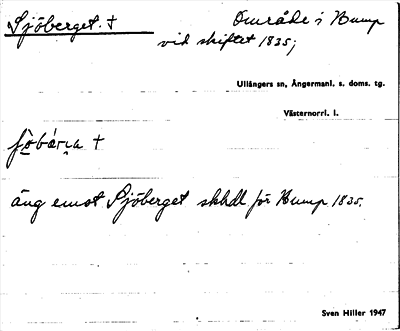 Sjöberget. † Område i Bump
vid skiftet 1835;
Ullångers sn, Ångermanl. s. doms. tg.
Västernorrl. l.
äng emot Sjöberget skhdl. för Bump 1835.
Sven Hiller 1947